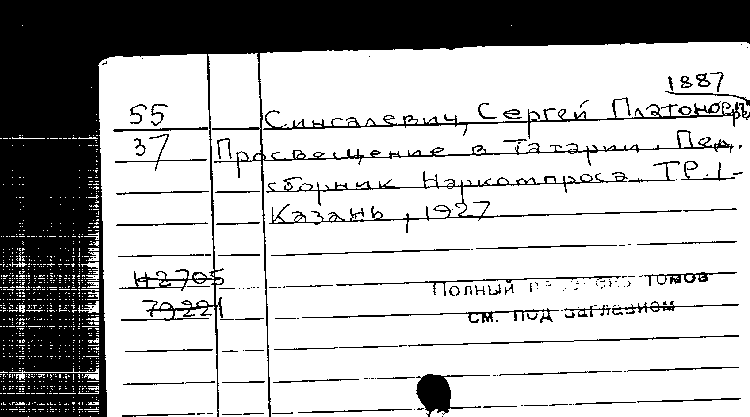 1887
55 Сингалевич, Сергей Платонов.
37 Просвещение в Татарии. Пед.
сборник Наркомпроса ТР. 1-
Казань, 1927
42705
79221
Полный перечень томов
см. под заглавием